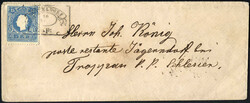 Herrn Joh. König
poste restante Jägerndorf bei
Troppau K. K. Schlesien